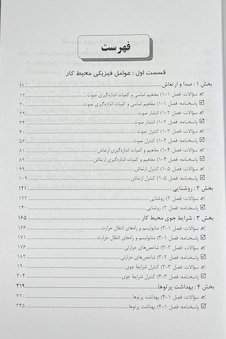 فهرست
قسمت اول: عوامل فیزیکی محیط کار
بخش ۱: صدا و ارتعاش ۱۱
سؤالات: فصل ۱-۱) مفاهیم اساسی و کمیات اندازه‌گیری صوت ۱۲
پاسخنامه: فصل ۱-۱) مفاهیم اساسی و کمیات اندازه‌گیری صوت ۲۰
سؤالات: فصل ۲-۱) انتشار صوت ۲۹
پاسخنامه: فصل ۲-۱) انتشار صوت ۳۴
سؤالات: فصل ۳-۱) کنترل صوت ۴۰
پاسخنامه: فصل ۳-۱) کنترل صوت ۵۶
سؤالات: فصل ۴-۱) مفاهیم و کمیات اندازه‌گیری ارتعاش
پاسخنامه: فصل ۴-۱) مفاهیم و کمیات اندازه‌گیری ارتعاش ۸۹
سؤالات: فصل ۵-۱) کنترل ارتعاش ۹۹
پاسخنامه: فصل ۵-۱) کنترل ارتعاش ۱۰۹
بخش ۲: روشنایی ۱۲۱
سؤالات: فصل ۲) روشنایی ۱۲۲
پاسخنامه: فصل ۲) روشنایی ۱۴۰
بخش ۳: شرایط جوی محیط کار ۱۶۵
سؤالات: فصل ۱-۳) متابولیسم و راه‌های انتقال حرارت ۱۶۶
پاسخنامه: فصل ۱-۳) متابولیسم و راه‌های انتقال حرارت ۱۷۱
سؤالات: فصل ۲-۳) شاخص‌های حرارتی ۱۷۶
پاسخنامه: فصل ۲-۳) شاخص‌های حرارتی ۱۸۲
سؤالات: فصل ۳-۳) کنترل شرایط جوی ۱۹۰
پاسخنامه: فصل ۳-۳) کنترل شرایط جوی ۲۰۴
بخش ۴: بهداشت پرتوها ۲۱۹
سؤالات: فصل ۴) بهداشت پرتوها ۲۲۰
پاسخنامه: فصل ۴) بهداشت پرتوها ۲۴۵